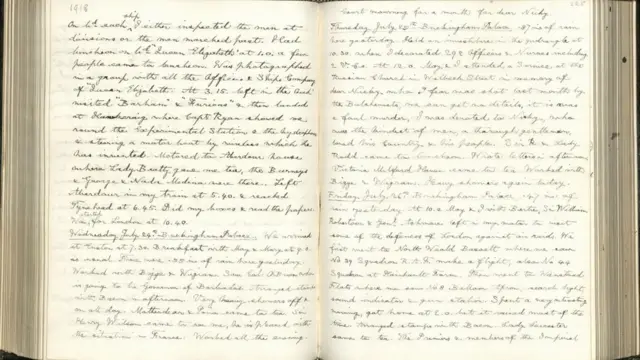 1918
On bd. each ship I either inspected the men at
divisions or the men marched past. Had
luncheon on bd. Queen Elizabeth at 1.0. A few
people came to luncheon. Was photographed
in a group with all the Officers & Ships Company
of Queen Elizabeth. At 3.15 left in the
visited "Barham" & "Furious" & then landed
at Hawkcraig where Capt. Ryan showed us
round the Experimental Station & the hydrophone
& steering a motor boat by wireless which he
has invented. Motored to Aberdour house
where Lady Beatty gave me tea, the Burneys
& George & Nada Medina were there. Left
Aberdour in my train at 5.40 & reached
at 6.45. Did my boxes & read the papers.
We started for London at 10.40.
Wednesday July 24th. Buckingham Palace. We arrived
at Euston at 9.30. Breakfast with May & Mary at
as usual. There was .22 in of rain here yesterday.
Worked with Bigge & Wigram. Saw Col.
is going to be Governor of Barbados. Arranged stamps
with Bacon in afternoon. Very heavy showers off &
on all day. & came to tea. Sir
Henry Wilson came to see me, he is pleased with
the situation in France. Worked all the evening.
Court mourning for a month for dear Nicky.
Thursday, July 25th. Buckingham Palace. .27 in of rain
here yesterday. Held an investiture in the quadrangle at
10.30. when I decorated 292 Officers & Nurses including
2 V.Cs. At 12.0 May & I attended a service at the
Russian Church in Welbeck Street in memory of
dear Nicky, who I fear was shot last month by
the Bolshevists, we can get no details, it was
a foul murder. I was devoted to Nicky, who
was the kindest of men, a thorough gentleman,
loved his Country & his people. & Lady
came to luncheon. Wrote to in afternoon.
Victoria Milford Haven came to tea. Worked with
Bigge & Wigram. Heavy showers again today.
Friday, July 26th. Buckingham Palace. .47 in of
rain yesterday. At 10.0 May & I with Bertie, Sir William
Robertson & Genl. Ashmore left in my motor to visit
some of the defences of London against air raids. We
first went to North Weald Bassett where we saw
No 39 Squadron R.A.F. make a flight, also No 44
Squadron at Hainault Farm. Then went to Wanstead
Flats where we saw Balloon Apron, search light,
sound indicators & gun station. Spent a very interesting
morning, got home at 1.0. but it rained most of the
time. Arranged stamps with Bacon. Lady Leicester
came to tea. The Premiers & members of the Imperial